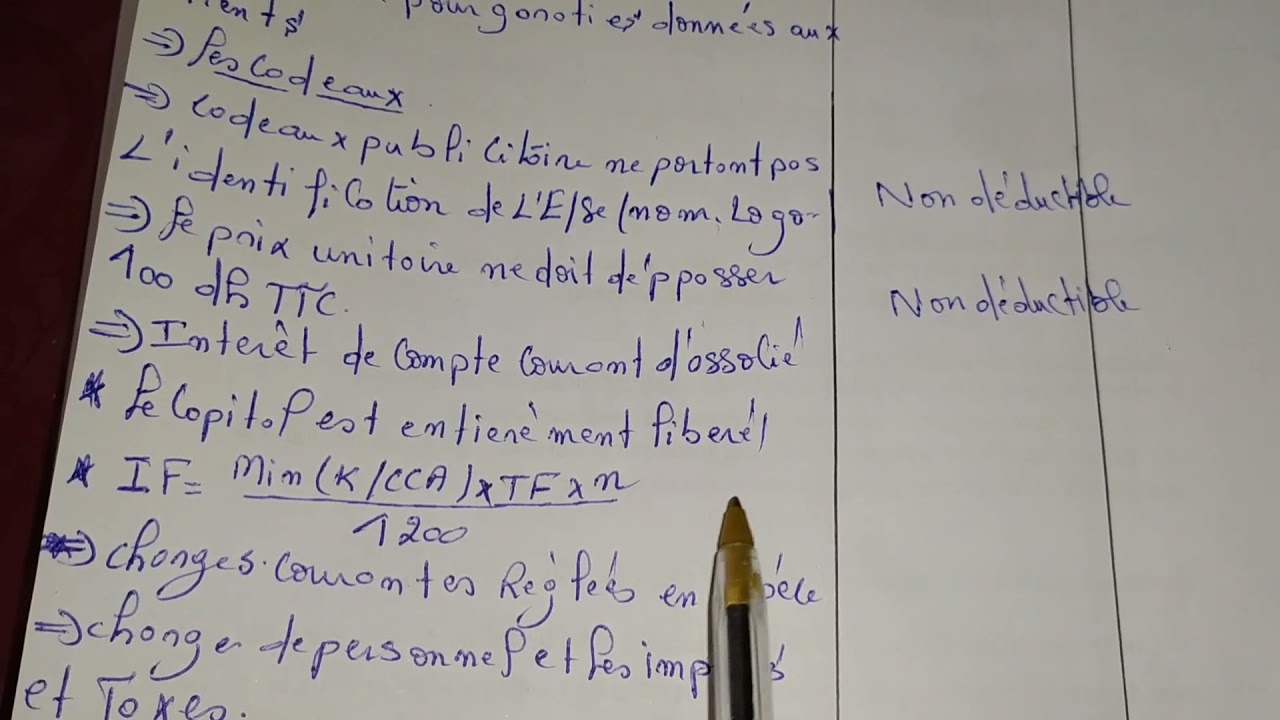 pour garanties données aux
⇒ Les Cadeaux
⇒ Cadeaux publicitaire ne portant pas
L'identification de L'E/Se (nom, Logo-
Non déductible
⇒ Le prix unitaire ne doit dépasser
100 dh TTC.
Non déductible
⇒ Interêt de compte courant d'associé
* Le Capital est entierèment liberé/
* IF = Min (K/CCA) x TF x n
1200
⇒ charges courantes Réglées en
⇒ charges de personnel et les
et Taxes.